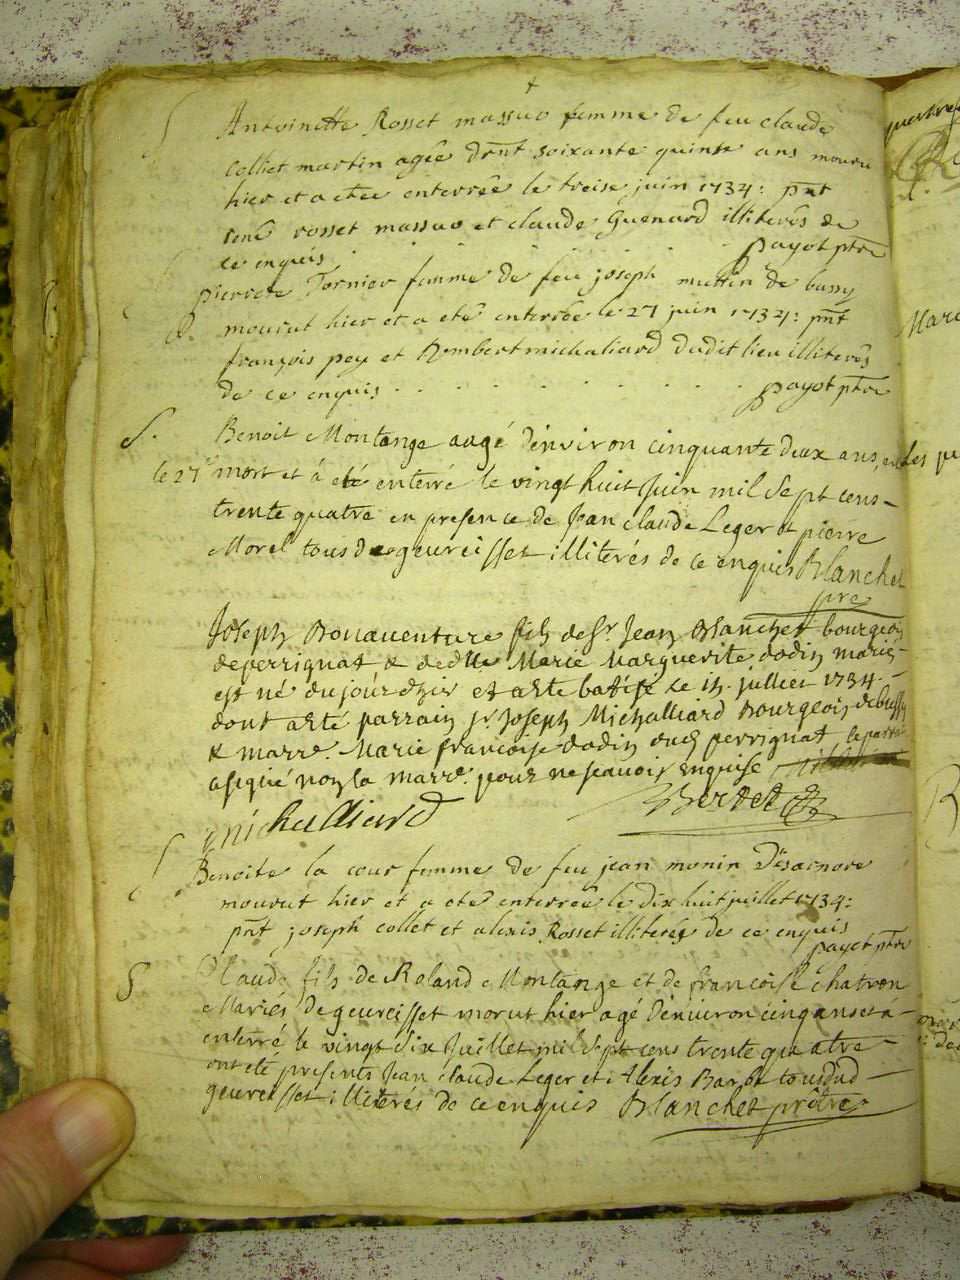 +
S Antoinette Rosset massuo femme de feu claude
Colliet martin agée dont soixante quinse ans mouru
hier et a etée enterrée le treise juin 1734: pnt
rosset massuo et claude Guenard illiterés de
ce enquis payot ptre
pierrete Tornier femme de feu joseph muttin de bussy
mourut hier et a eté enterrée le 27 juin 1734: pnt
françois pey et humbert michaliard dudit lieu illiterés
de ce enquis payot ptre
S. Benoit Montange aagé d'environ cinquante deux ans,
le 27e mort et á eté enterré le vingt huit Juin mil Sept cens
trente quatre en presence de Jean claude Leger et pierre
Morel tous de geureisset illiterés de ce enquis Blanchet
pre
Joseph Bonaventure fils de Sr Jean Blanchet bourgeois
de perrignat & de dlle Marie Marguerite dodin mariés
est né du jour dhier et a esté batisé le juillet 1734.
dont a esté parrain sr Joseph Michalliard Bourgeois de bussy
& marre. Marie francoise dodin dud perrignat le parrain
a signé non la marre. pour ne scavoir enquise
michalliard Berdet
S Benoite la cour femme de feu jean monin Désarnore
mourut hier et a eté enterrée le dix huit juillet 1734:
pnt joseph collet et alexis Rosset illiterés de ce enquis
payot ptre
S Claude fils de Roland Montange et de francoise chatron
Mariés de geureisset morut hier agé denviron cinq ans et á
enterré le vingt Six Juillet mil Sept cens trente quatre
ont eté presents Jean Claude Leger et Alexis Barbe tous dud
geureisset illiterés de ce enquis Blanchet prêtre